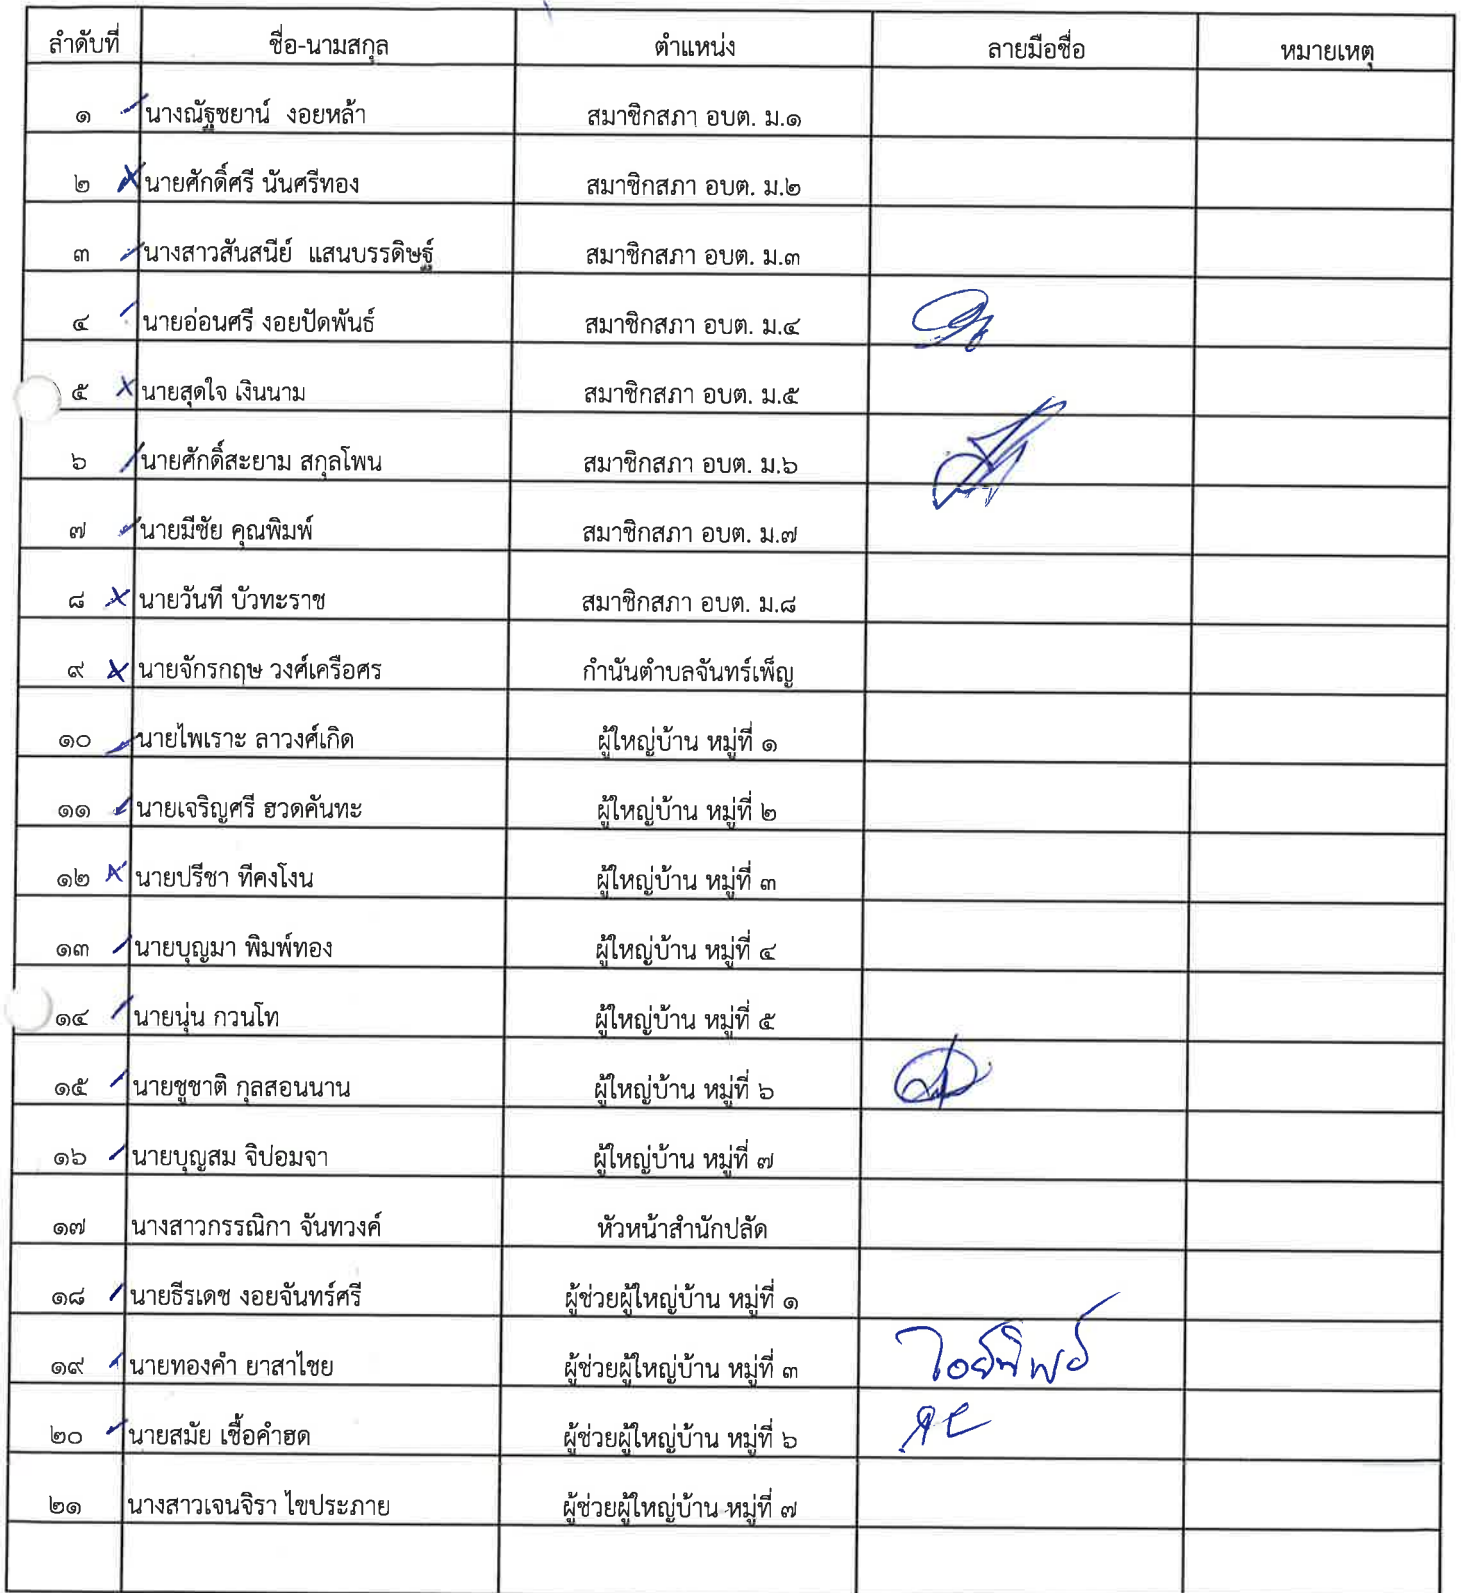 ลำดับที่ ชื่อ-นามสกุล ตำแหน่ง ลายมือชื่อ หมายเหตุ
๑ นางณัฐชยาน์ งอยหล้า สมาชิกสภา อบต. ม.๑
๒ นายศักดิ์ศรี นันศรีทอง สมาชิกสภา อบต. ม.๒
๓ นางสาวสันสนีย์ แสนบรรดิษฐ์ สมาชิกสภา อบต. ม.๓
๔ นายอ่อนศรี งอยปัดพันธ์ สมาชิกสภา อบต. ม.๔
๕ นายสุดใจ เงินนาม สมาชิกสภา อบต. ม.๕
๖ นายศักดิ์สะยาม สกุลโพน สมาชิกสภา อบต. ม.๖
๗ นายมีชัย คุณพิมพ์ สมาชิกสภา อบต. ม.๗
๘ นายวันที บัวทะราช สมาชิกสภา อบต. ม.๘
๙ นายจักรกฤษ วงศ์เครือศร กำนันตำบลจันทร์เพ็ญ
๑๐ นายไพเราะ ลาวงศ์เกิด ผู้ใหญ่บ้าน หมู่ที่ ๑
๑๑ นายเจริญศรี ฮวดคันทะ ผู้ใหญ่บ้าน หมู่ที่ ๒
๑๒ นายปรีชา ทีคงโงน ผู้ใหญ่บ้าน หมู่ที่ ๓
๑๓ นายบุญมา พิมพ์ทอง ผู้ใหญ่บ้าน หมู่ที่ ๔
๑๔ นายนุ่น กวนโท ผู้ใหญ่บ้าน หมู่ที่ ๕
๑๕ นายชูชาติ กุลสอนนาน ผู้ใหญ่บ้าน หมู่ที่ ๖
๑๖ นายบุญสม จิปอมจา ผู้ใหญ่บ้าน หมู่ที่ ๗
๑๗ นางสาวกรรณิกา จันทวงค์ หัวหน้าสำนักปลัด
๑๘ นายธีรเดช งอยจันทร์ศรี ผู้ช่วยผู้ใหญ่บ้าน หมู่ที่ ๑
๑๙ นายทองคำ ยาสาไชย ผู้ช่วยผู้ใหญ่บ้าน หมู่ที่ ๓
๒๐ นายสมัย เชื้อคำฮด ผู้ช่วยผู้ใหญ่บ้าน หมู่ที่ ๖
๒๑ นางสาวเจนจิรา ไขประภาย ผู้ช่วยผู้ใหญ่บ้าน หมู่ที่ ๗